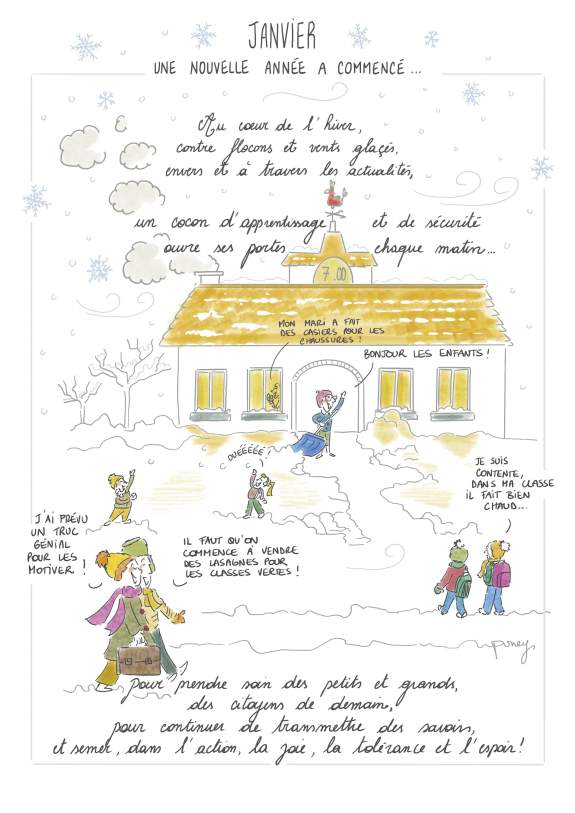 JANVIER
UNE NOUVELLE ANNÉE A COMMENCÉ...
Au cœur de l'hiver,
contre flocons et vents glacés,
envers et à travers les actualités,
un cocon d'apprentissage et de sécurité
ouvre ses portes chaque matin...
7.00
MON MARI A FAIT
DES CASIERS POUR LES
CHAUSSURES !
BONJOUR LES ENFANTS !
OUÉÉÉÉÉ !
JE SUIS
CONTENTE,
DANS MA CLASSE
IL FAIT BIEN
CHAUD...
J'AI PRÉVU
UN TRUC
GÉNIAL
POUR LES
MOTIVER !
IL FAUT QU'ON
COMMENCE À VENDRE
DES LASAGNES POUR
LES CLASSES VERTES !
pour prendre soin des petits et grands,
des citoyens de demain,
pour continuer de transmettre des savoirs,
et semer, dans l'action, la joie, la tolérance et l'espoir !